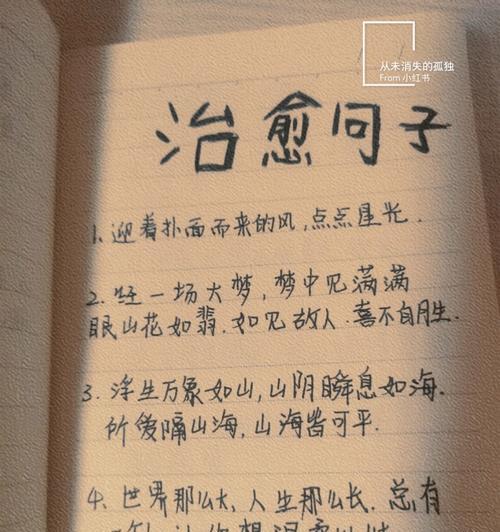 从未消失的孤独
From 小红书
治愈句子
1. 迎着扑面而来的风,点点星光.
2. 经一场大梦,梦中见满满
眼山花如翡.如见故人.喜不自胜.
3. 浮生万象如山,山阴瞬息如海.
所爱隔山海,山海皆可平.
4. 世界那么大,人生那么长.总有